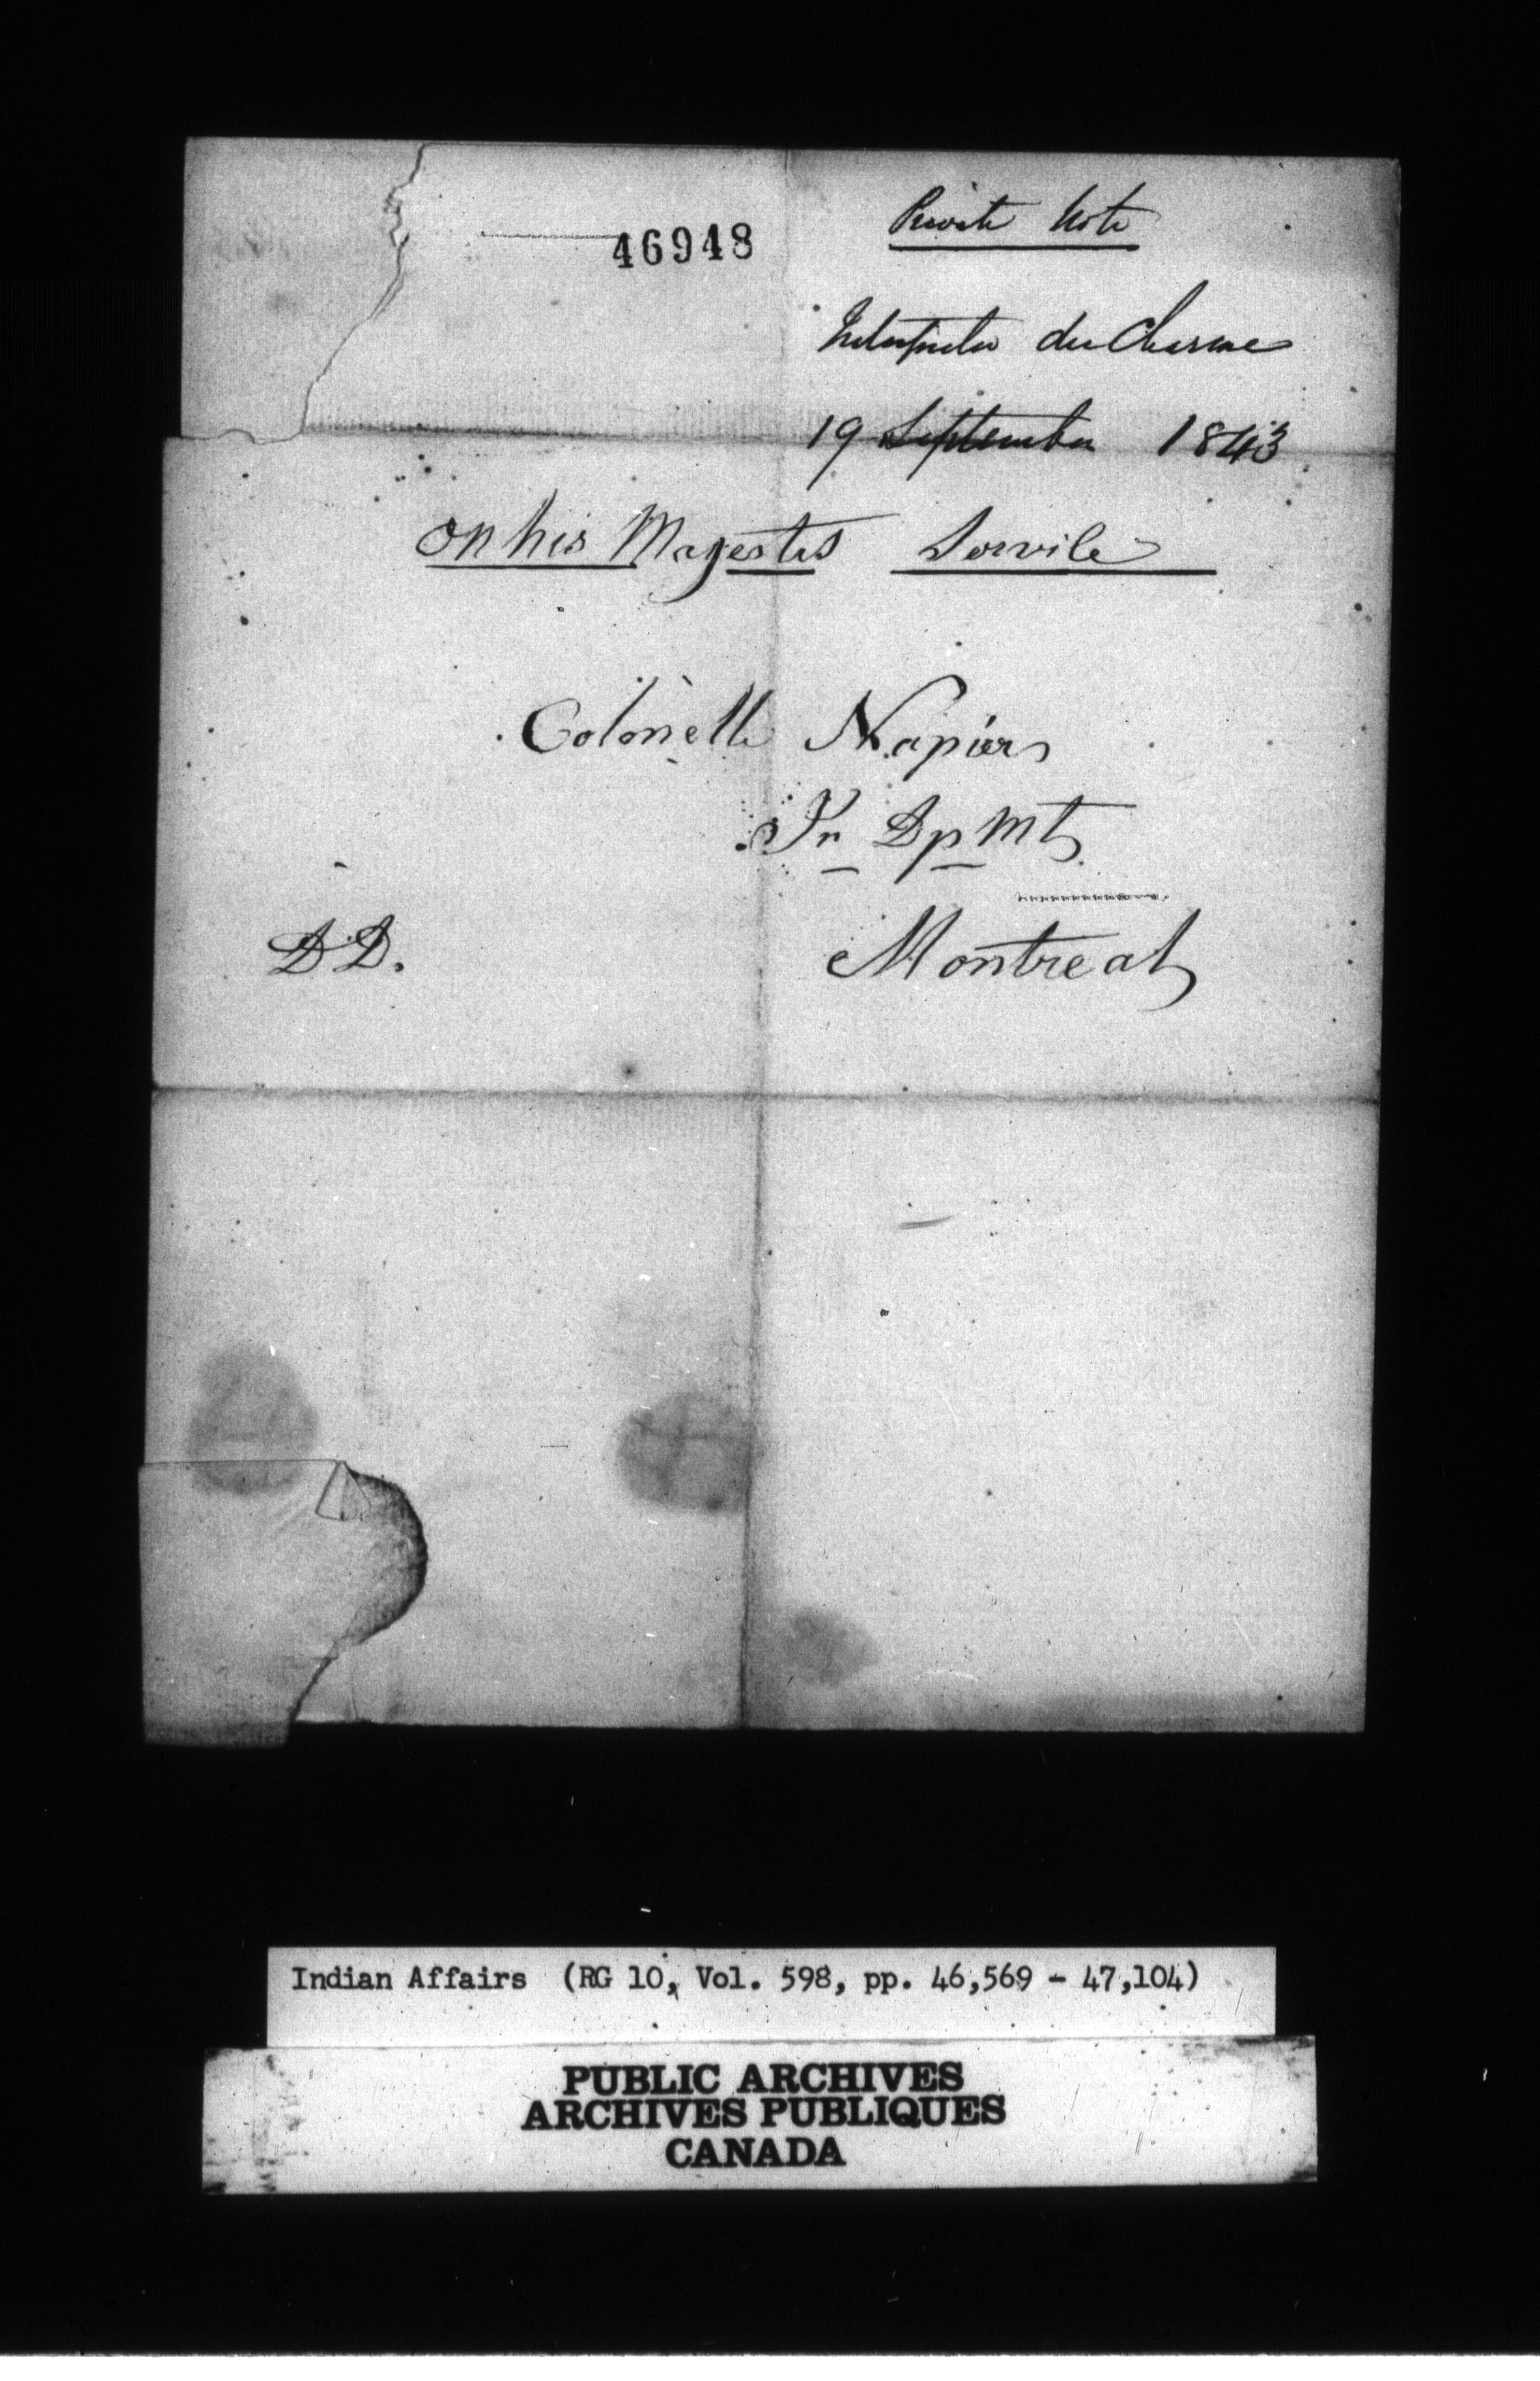 46948
Private Note
Interpreter du Charme
19 September 1843
On his Magestes Sorvile
Colonelle Napier
In DpMt
D.D. Montreal
Indian Affairs (RG 10, Vol. 598, pp. 46,569 - 47,104)
PUBLIC ARCHIVES
ARCHIVES PUBLIQUES
CANADA